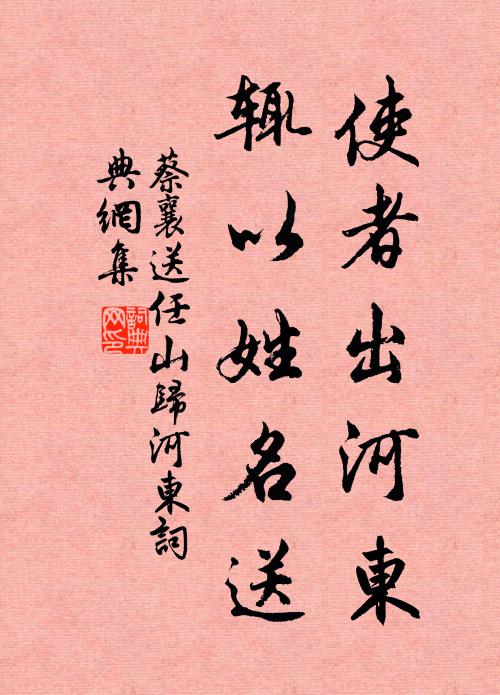 使者出河東
輒以姓名送
蔡襄送任山歸河東詞
典網集
詞典
网印